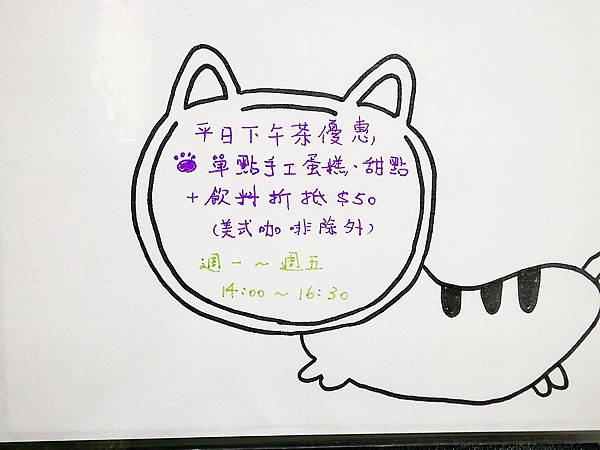 平日下午茶優惠,
單點手工蛋糕、甜點
+飲料折抵$50
(美式咖啡除外)
週一~週五
14:00~16:30